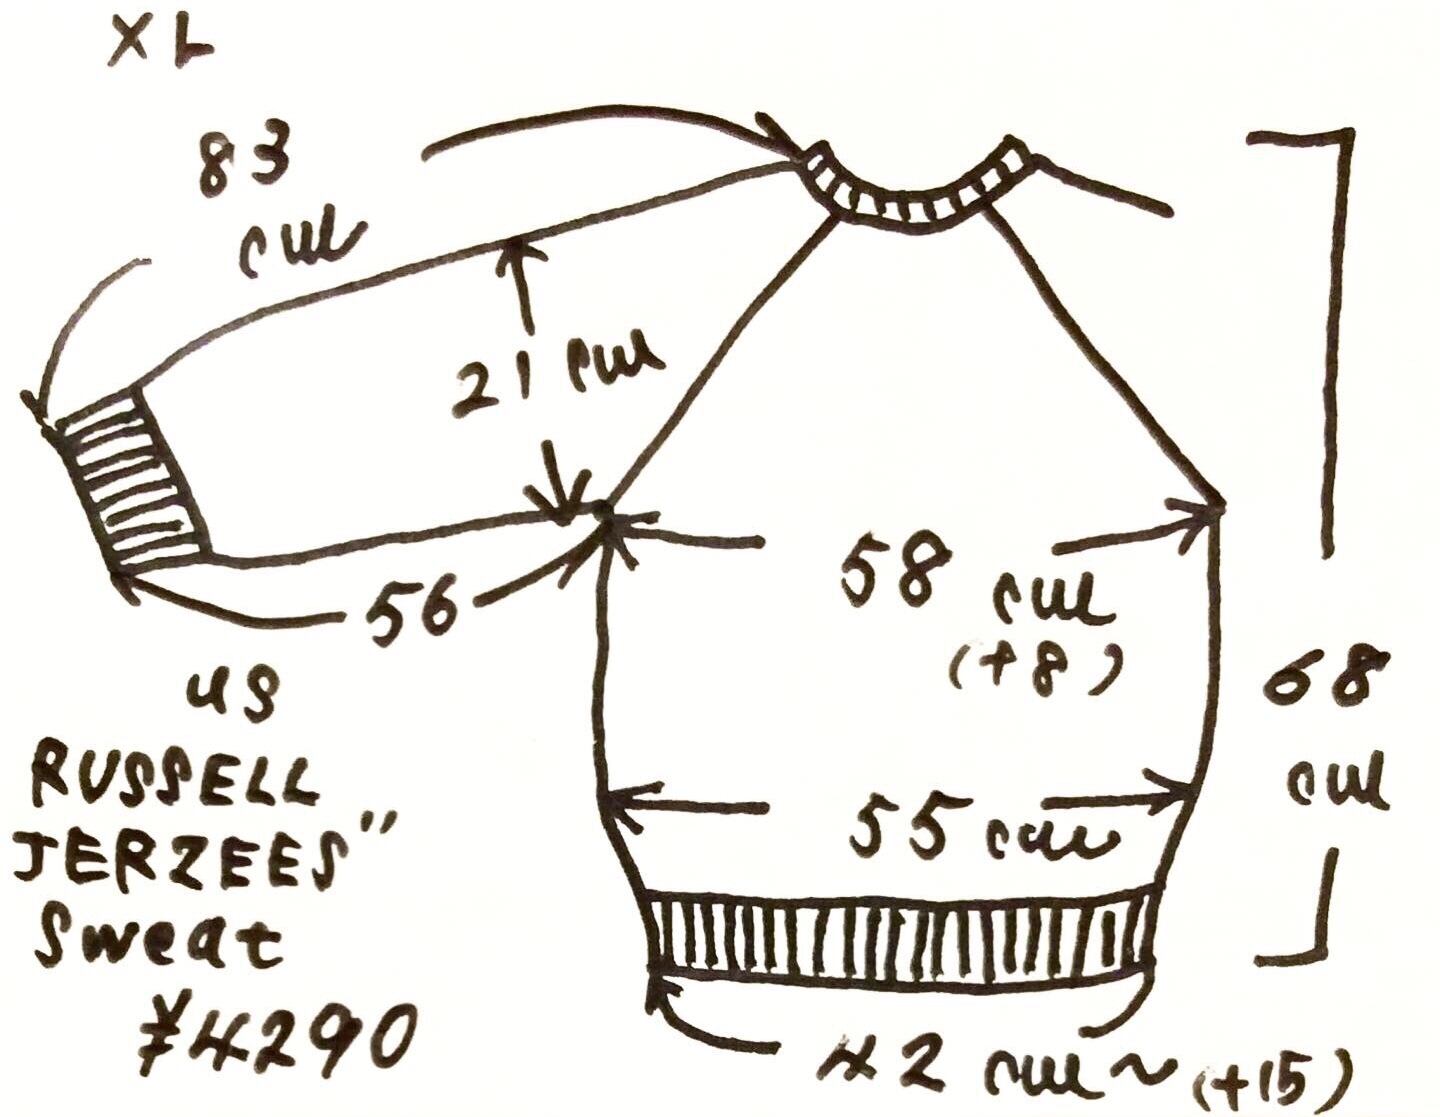 XL
83
cm
21 cm
56
58 cm
(+8)
68
cm
55 cm
42 cm~(+15)
us
RUSSELL
JERZEES"
Sweat
¥4290